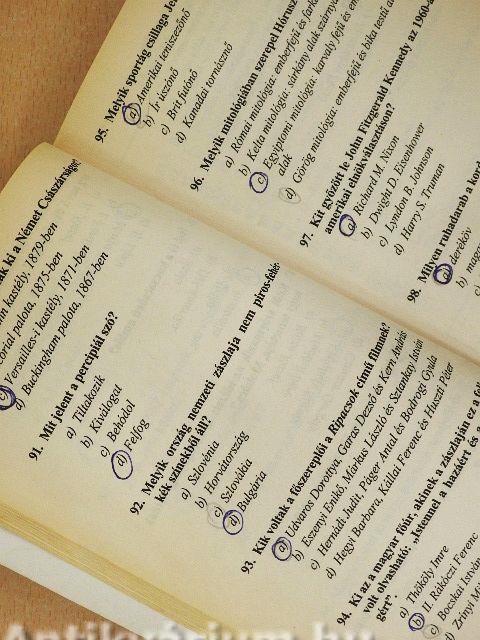 ak ki a Német Császárságot
kastély, 1879-ben
palota, 1875-ben
c) Versailles-i kastély, 1871-ben
d) Buckingham palota, 1867-ben
91. Mit jelent a percipiál szó?
a) Tiltakozik
b) Kiválogat
c) Behódol
d) Felfog
92. Melyik ország nemzeti zászlaja nem piros-fehér-
kék színekből áll?
a) Szlovénia
b) Horvátország
c) Szlovákia
d) Bulgária
93. Kik voltak a főszereplői a Ripacsok című filmnek?
a) Udvaros Dorottya, Garas Dezső és Kern András
b) Eszenyi Enikő, Márkus László és Sztankay István
c) Hernádi Judit, Páger Antal és Bodrogi Gyula
d) Hegyi Barbara, Kállai Ferenc és Huszti Péter
94. Ki az a magyar főúr, akinek a zászlaján ez a
volt olvasható: „Istennel a hazáért és a
ért”.
a) Thököly Imre
b) II. Rákóczi Ferenc
c) Bocskai István
Zrínyi
95. Melyik sportág csillaga
a) Amerikai teniszezőnő
b) Ír úszónő
c) Brit futónő
d) Kanadai tornásznő
96. Melyik mitológiában szerepel Hórusz
a) Római mitológia: emberfejű és
b) Kelta mitológia: sárkány alak
c) Egyiptomi mitológia: karvaly fejű és
alak
d) Görög mitológia: emberfejű és bika testű
97. Kit győzött le John Fitzgerald Kennedy az 1960-
amerikai elnökválasztáson?
a) Richard M. Nixon
b) Dwight D. Eisenhower
c) Lyndon B. Johnson
d) Harry S. Truman
98. Milyen ruhadarab a
a) deréköv
b)
Antikvárium.hu